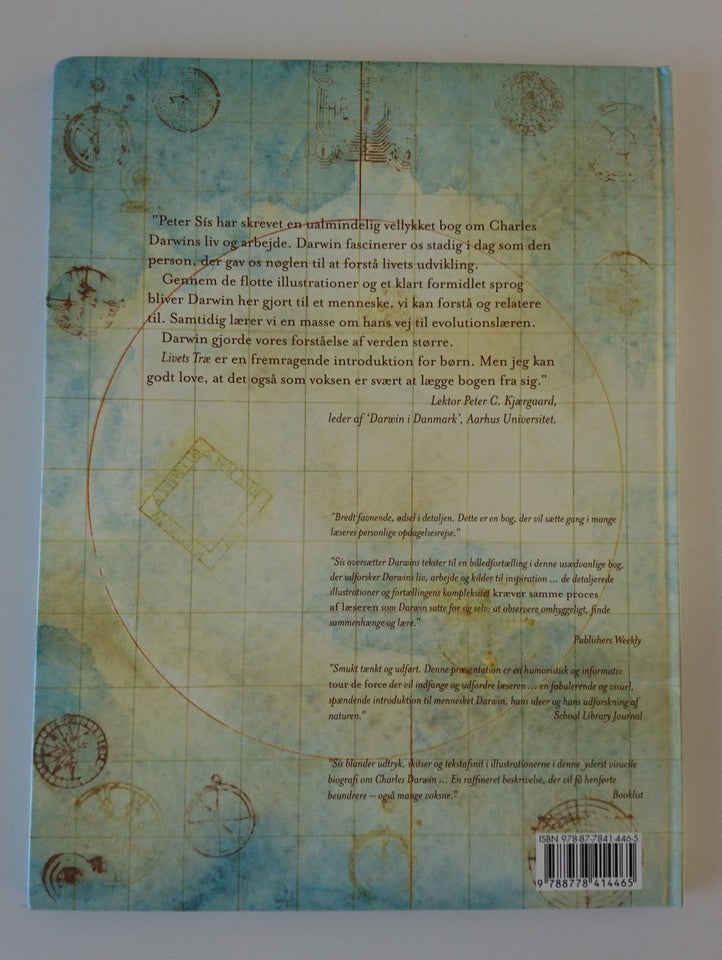 "Peter Sis har skrevet en ualmindelig vellykket bog om Charles
Darwins liv og arbejde. Darwin fascinerer os stadig i dag som den
person, der gav os nøglen til at forstå livets udvikling.
Gennem de flotte illustrationer og et klart formidlet sprog
bliver Darwin her gjort til et menneske, vi kan forstå og relatere
til. Samtidig lærer vi en masse om hans vej til evolutionslæren.
Darwin gjorde vores forståelse af verden større.
Livets Træ er en fremragende introduktion for børn. Men jeg kan
godt love, at det også som voksen er svært at lægge bogen fra sig."
Lektor Peter C. Kjærgaard,
leder af 'Darwin i Danmark', Aarhus Universitet.
"Bredt favnende, ødsel i detaljen. Dette er en bog, der vil sætte gang i mange
læseres personlige opdagelsesrejse."
"Sis oversætter Darwins tekster til en billedfortælling i denne usædvanlige bog,
der udforsker Darwins liv, arbejde og kilder til inspiration ... de detaljerede
illustrationer og fortællingens kompleksitet kræver samme proces
af læseren som Darwin satte for sig selv: at observere omhyggeligt, finde
sammenhænge og lære."
Publishers Weekly
"Smukt tænkt og udført. Denne præsentation er en humoristisk og informativ
tour de force der vil indfange og udfordre læseren ... en fabulerende og visuel,
spændende introduktion til mennesket Darwin, hans ideer og hans udforskning af
naturen." School Library Journal
"Sis blander udtryk, skitser og tekstafsnit i illustrationerne i denne yderst visuelle
biografi om Charles Darwin ... En raffineret beskrivelse, der vil få henførte
beundrere – også mange voksne." Booklist
ISBN 978-87-7841-446-5
9 788778 414465